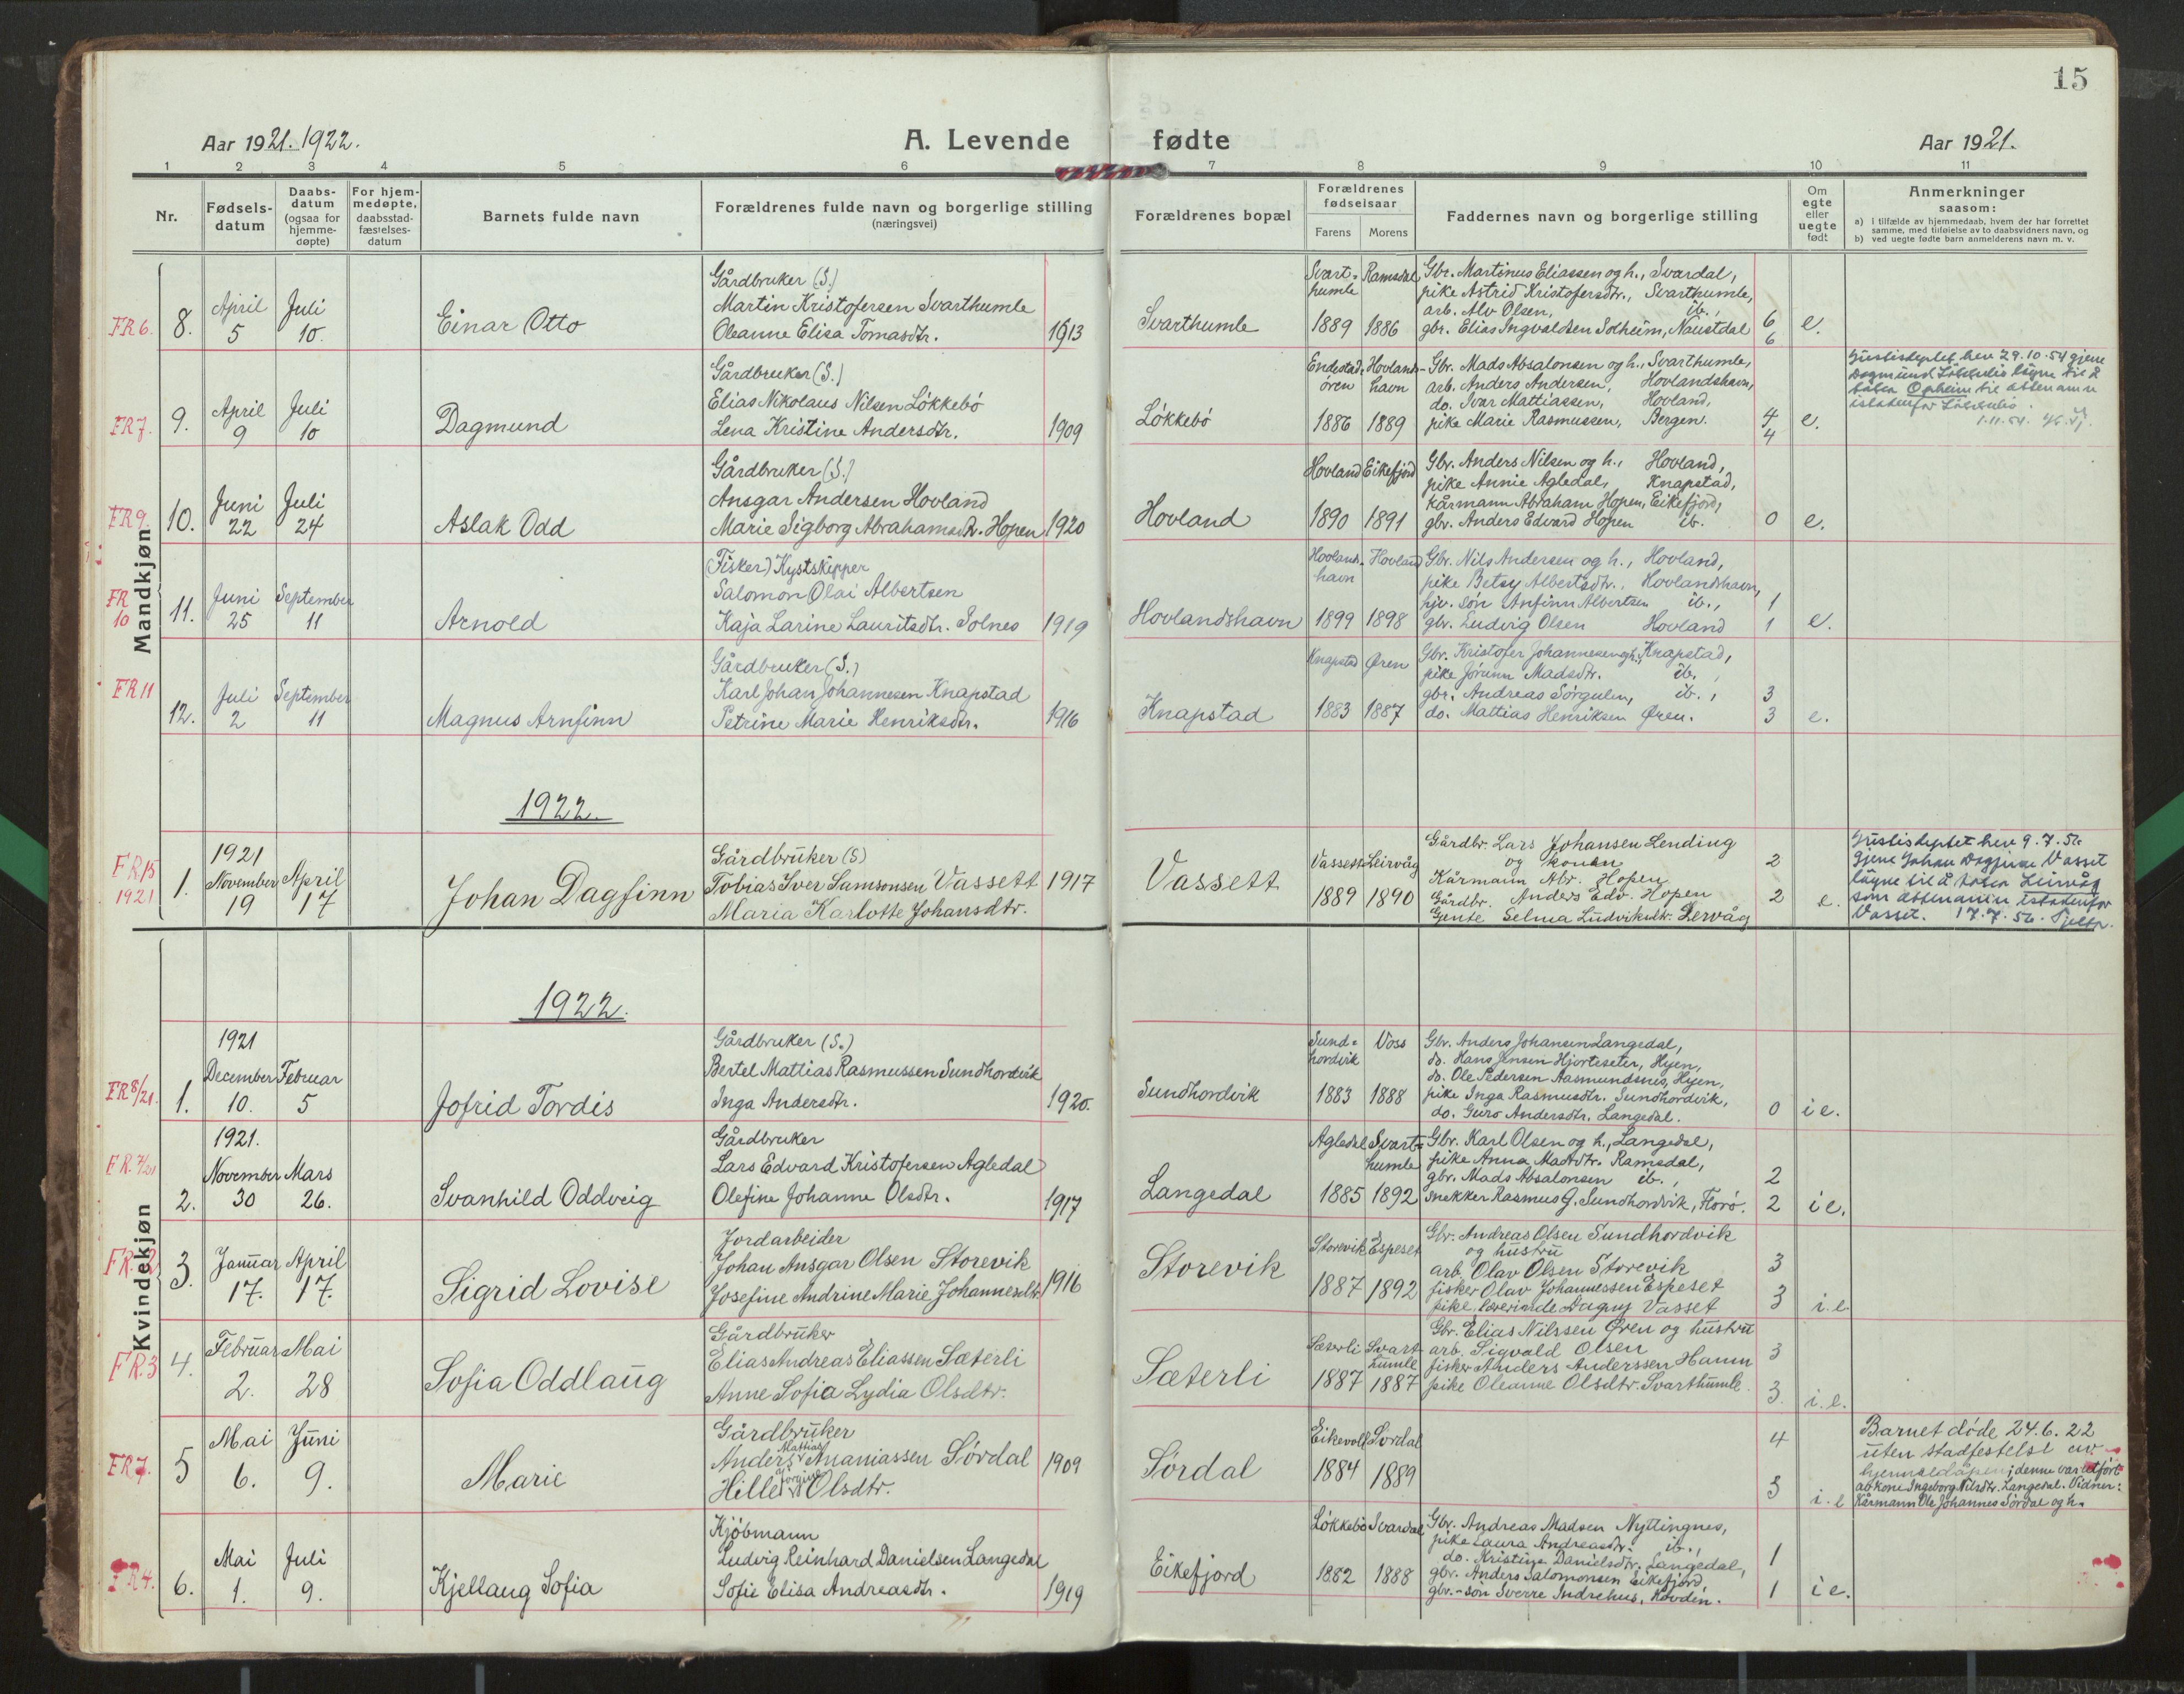 15
Aar 1921. 1922.
A. Levende fødte
Aar 1921.
1 2 3 4 5 6 7 8 9 10 11
Nr.
Fødsels-
datum
Daabs-
datum
(ogsaa for
hjemme-
døpte)
For hjem-
medøpte,
daabsstad-
fæstelses-
datum
Barnets fulde navn
Forældrenes fulde navn og borgerlige stilling
(næringsvei)
Forældrenes bopæl
Forældrenes
fødselsaar
Farens Morens
Faddernes navn og borgerlige stilling
Om
egte
eller
uegte
født
Anmerkninger
saasom:
a) I tilfælde av hjemmedaab, hvem der har forrettet
samme, med tilføielse av to daabsvidners navn, og
b) ved uegte fødte barn anmelderens navn m. v.
Mandkjøn
FR 6.
8.
April
5
Juli
10.
Einar Otto
Gårdbruker (S.)
Martin Kristofersen Svarthumle
Oleanne Elisa Tomasdtr.
1913
Svarthumle
Svart-
humle
1889
Ramsdal
1886
Gbr. Martinus Eliassen og h., Svardal,
pike Astrid Kristofersdtr., Svarthumle,
arb. Alv Olsen, ib.,
gbr. Elias Ingvaldsen Solheim, Naustdal
6
6
e.
FR 7.
9.
April
9
Juli
10
Dagmund
Gårdbruker (S.)
Elias Nikolaus Nilsen Løkkebö
Lena Kristine Andersdtr.
1909
Løkkebö
Endestad-
ören
1886
Hovlands-
havn
1889
Gbr. Mads Absalonsen og h., Svarthumle,
arb. Anders Andersen, Hovlandshavn,
do. Ivar Mattiassen, Hovland,
pike Marie Rasmussen, Bergen.
4
4
e.
29.10.54
1.11.54.
FR 9.
10.
Juni
22
Juli
24
Aslak Odd
Gårdbruker (S.)
Ansgar Andersen Hovland
Marie Sigborg Abrahamsdtr. Hopen
1920
Hovland
Hovland
1890
Eikefjord
1891
Gbr. Anders Nilsen og h., Hovland,
pike Annie Agledal, Knapstad,
kårmann Abraham Hopen, Eikefjord,
gbr. Anders Edvard Hopen ib.
0
e.
FR
10
11.
Juni
25
September
11
Arnold
(Fisker) Kystskipper
Salomon Olai Albertsen
Kaja Larine Lauritsdtr. Solnes
1919
Hovlandshavn
Hovlands-
havn
1899
Hovland
1898
Gbr. Nils Andersen og h., Hovland,
pike Betsy Albertsdtr., Hovlandshavn,
hjv. sön Anfinn Albertsen ib.,
gbr. Ludvig Olsen Hovland
1
1
e.
FR 11
12.
Juli
2
September
11
Magnus Arnfinn
Gårdbruker (S.)
Karl Johan Johannesen Knapstad
Petrine Marie Henriksdtr.
1916
Knapstad
Knapstad
1883
Øren
1887
Gbr. Kristofer Johannesen og h., Knapstad,
pike Jörunn Madsdtr. ib.,
gbr. Andreas Sörgulen, ib.,
do. Mattias Henriksen Øren.
3
3
e.
1922.
FR 15
1921
1.
1921
November
19
April
17
Johan Dagfinn
Gårdbrüker (S)
Tobias Iver Samsonsen Vassett
Maria Karlotte Johansdtr.
1917
Vassett
Vassett
1889
Leirvåg
1890
Gårdbr. Lars Johansen Lending
og konen
Kårmann Abr. Hopen
Gårdbr. Anders Edv. Hopen
Gjente Selma Ludviksdtr. Lervåg
2
2
e.
Johan Dagfinn Vasset
Leirvåg
istadenfor
Vasset. 17.7.56.
Kvindekjøn
1922.
FR 8/21.
1.
1921
December
10.
Februar
5
Jofrid Tordis
Gårdbruker (S.)
Bertel Mattias Rasmussen Sundhordvik
Inga Andersdtr.
1920.
Sundhordvik
Sund-
hordvik
1883
Voss
1888
Gbr. Anders Johansen Langedal,
do. Hans Jensen Hjorteseter, Hyen,
do. Ole Pedersen Aasmundsnes, Hyen,
pike Inga Rasmusdtr. Sundhordvik,
do. Guro Andersdtr. Langedal.
0
i e.
2.
1921.
November
30
Mars
26.
Svanhild Oddveig
Gårdbruker
Lars Edvard Kristofersen Agledal
Olefine Johanne Olsdtr.
1917
Langedal
Agledal
1885
Svart-
humle
1892
Gbr. Karl Olsen og h., Langedal,
pike Anna Madsdtr. Ramsdal,
gbr. Mads Absalonsen ib.,
snekker Rasmus G. Sundhordvik, Florö.
2
2
i e.
3.
Januar
17.
April
17.
Sigrid Lovise
Jordarbeider
Johan Ansgar Olsen Storevik
Josefine Andrine Marie Johannesdtr.
1916
Storevik
Storevik
1887
Espeset
1892
Gbr. Andreas Olsen Sundhordvik
og hüstrü
arb. Olav Olsen Storevik
fisker Olav Johannessen Espeset
pike, lærerinde Dagny Vasset
3
3
i. e.
FR. 3
4.
Februar
2.
Mai
28
Sofia Oddlaüg
Gårdbrüker
Elias Andreas Eliassen Sæterli
Anne Sofia Lydia Olsdtr.
Sæterli
Sæterli
1887
Svart-
humle
1887
Gbr. Elias Nilssen Øren og hüstrü
arb. Sigvald Olsen
fisker Anders Anderssen Hamn
pike Oleanne Olsdtr. Svarthümle.
3
3.
i. e.
FR 7.
5
Mai
6.
Jüni
9.
Marie
Gårdbrüker
Anders Mattias Ananiassen Sördal
Hille Jorgine Olsdtr.
1909
Sördal
Eikevoll
1884
Sördal
1889
4
3
i. e
Barnet døde 24.6.22
üten stadfestelse av
hjemmedåpen; denne var utfört
av kone Ingeborg Nilsdtr. Langedal. Vidner:
Kårmann Ole Johannes Sördal og h.
FR 4.
6.
Mai
1.
Juli
9.
Kjellaug Sofia
Kjöbmann
Ludvig Reinhard Danielsen Langedal
Sofie Elisa Andreasdtr.
1919
Eikefjord
Løkkebö
1882
Svardal
1888
Gbr. Andreas Madsen Nyttingnes,
pike Laura Andreasdtr. ib.,
do. Kristine Danielsdtr. Langedal,
gbr. Anders Salomonsen Eikefjord,
gbr.-sön Sverre Indrehus, Hovden.
1
1
i e.